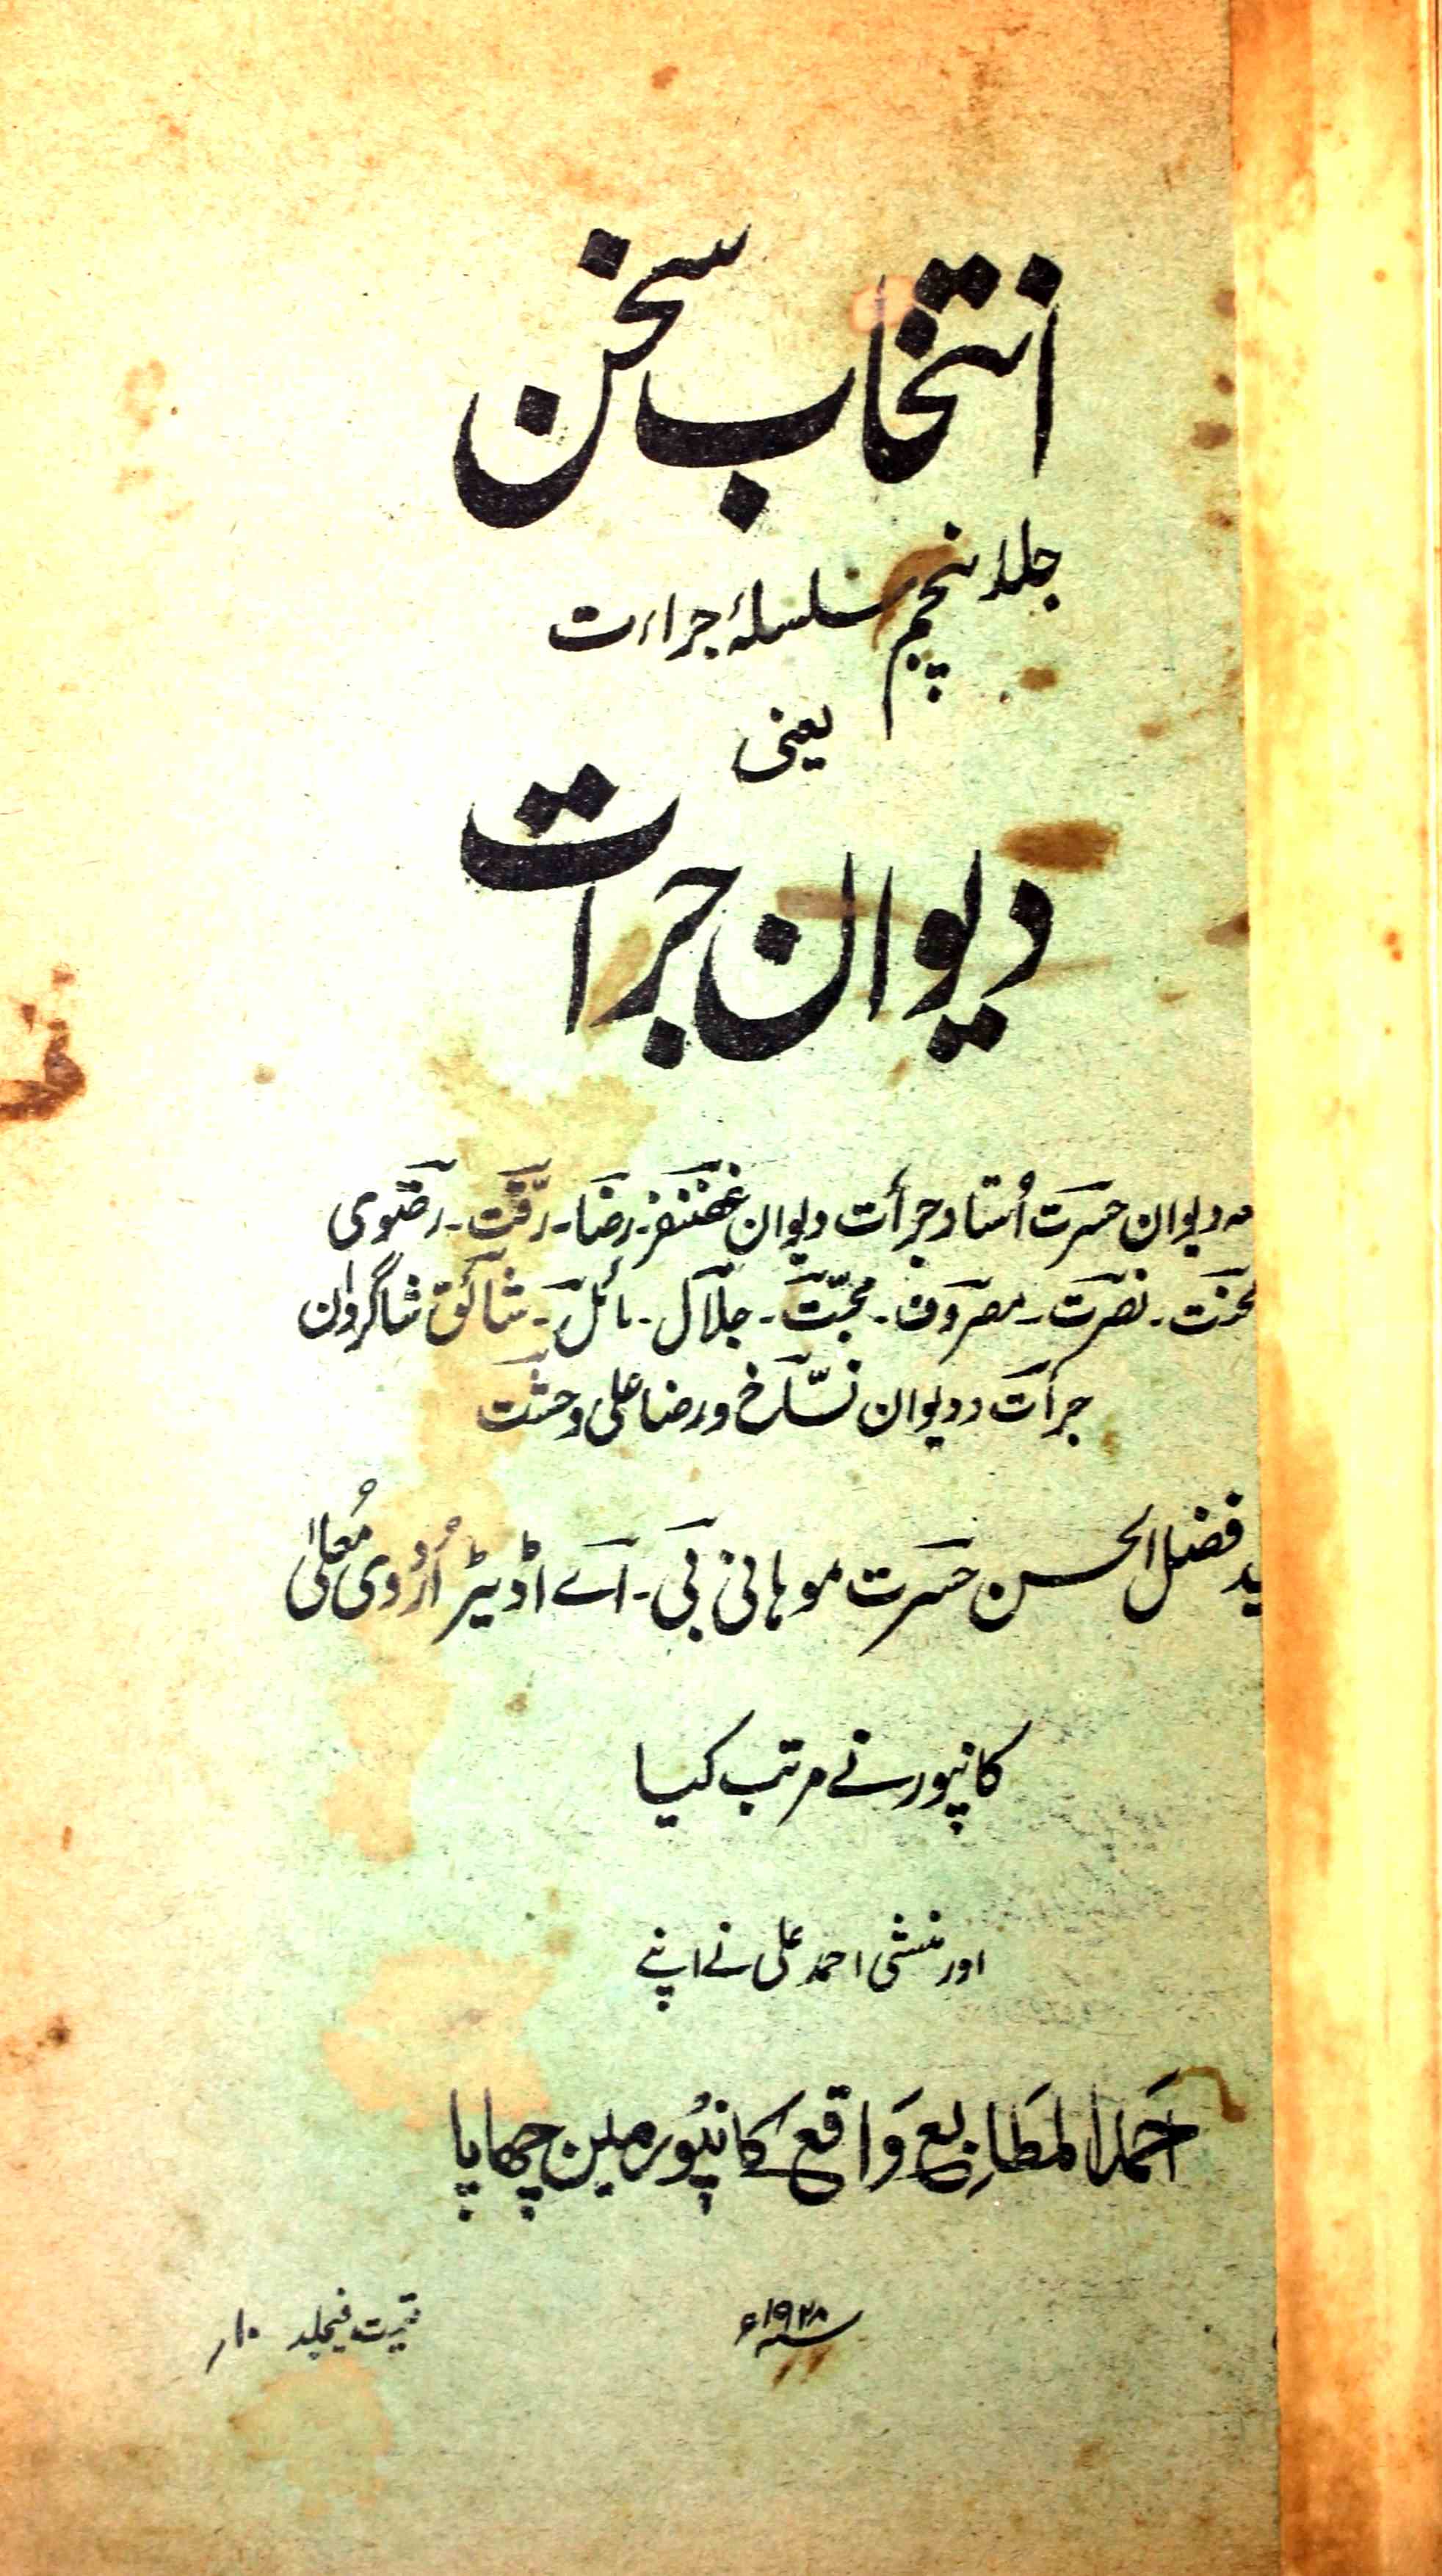 انتخاب سخن
جلد پنجم سلسلۂ جراءت
یعنی
دیوان جرات
دیوان حسرت اُستاد جرأت دیوان غضنفر۔ رضا۔ رقت۔ رضوی
نصرت۔ مصروف۔ محبّت۔ جلال۔ مائل۔ شائق شاگردان
جرأت و دیوان نسّاخ و رضا علی وحشت
فضل الحسن حسرت موہانی بی۔ اے اڈیٹر اُردوی مُعلیٰ
کانپور نے مرتب کیا
اور منشی احمد علی نے اپنے
احمد المطابع واقع کانپور مین چھاپا
سنہ ۱۹۲۸ء
قیمت فیجلد ۱۰ر